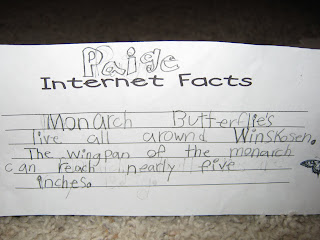 Paige
Internet Facts
Monarch Butterflie's
live all arownd Winskosen.
The wingpan of the monarch
can reach nearly five
inches.